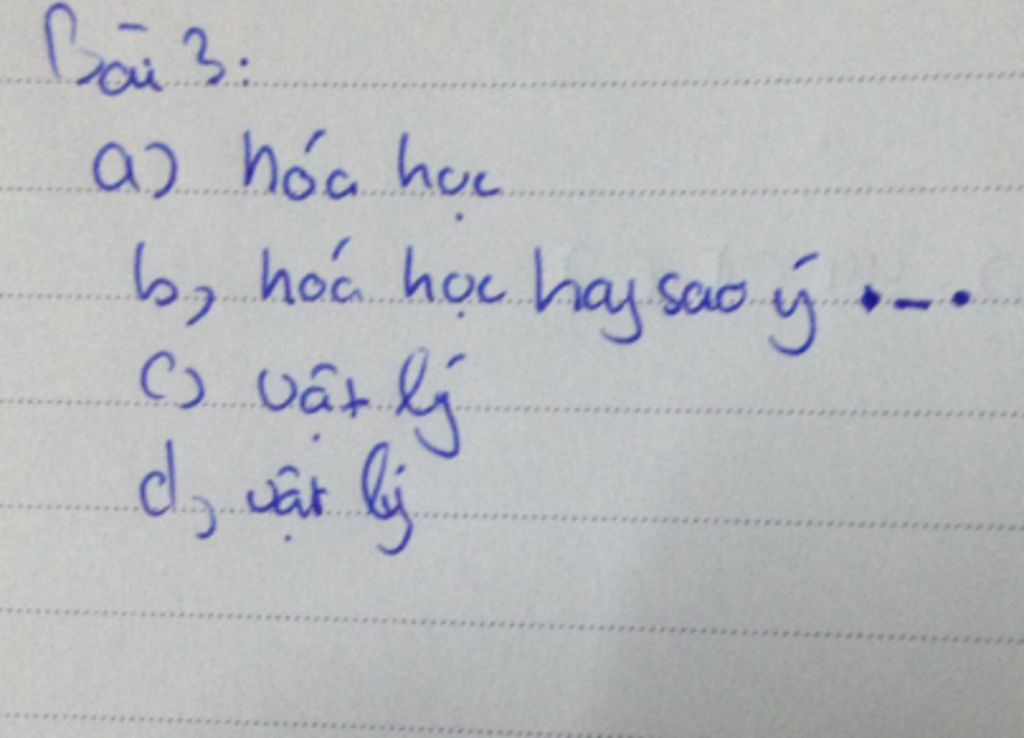 Bài 3:
a) hóa học
b, hoá học hay sao ý •_•
c) vật lý
d, vật lý